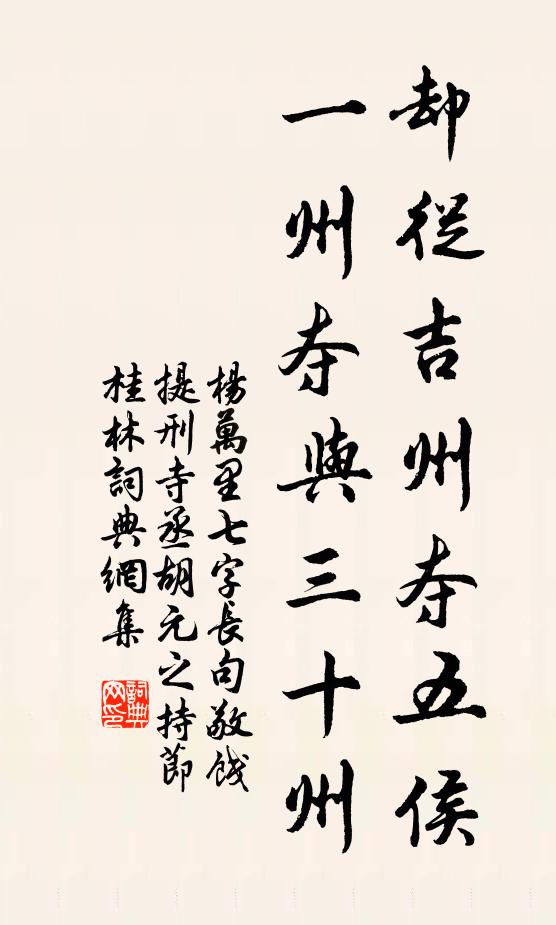 却從吉州夺五侯
一州夺與三十州
楊萬里七字長句敬餞
提刑寺丞胡元之持節
桂林詞典網集
詞典
网印